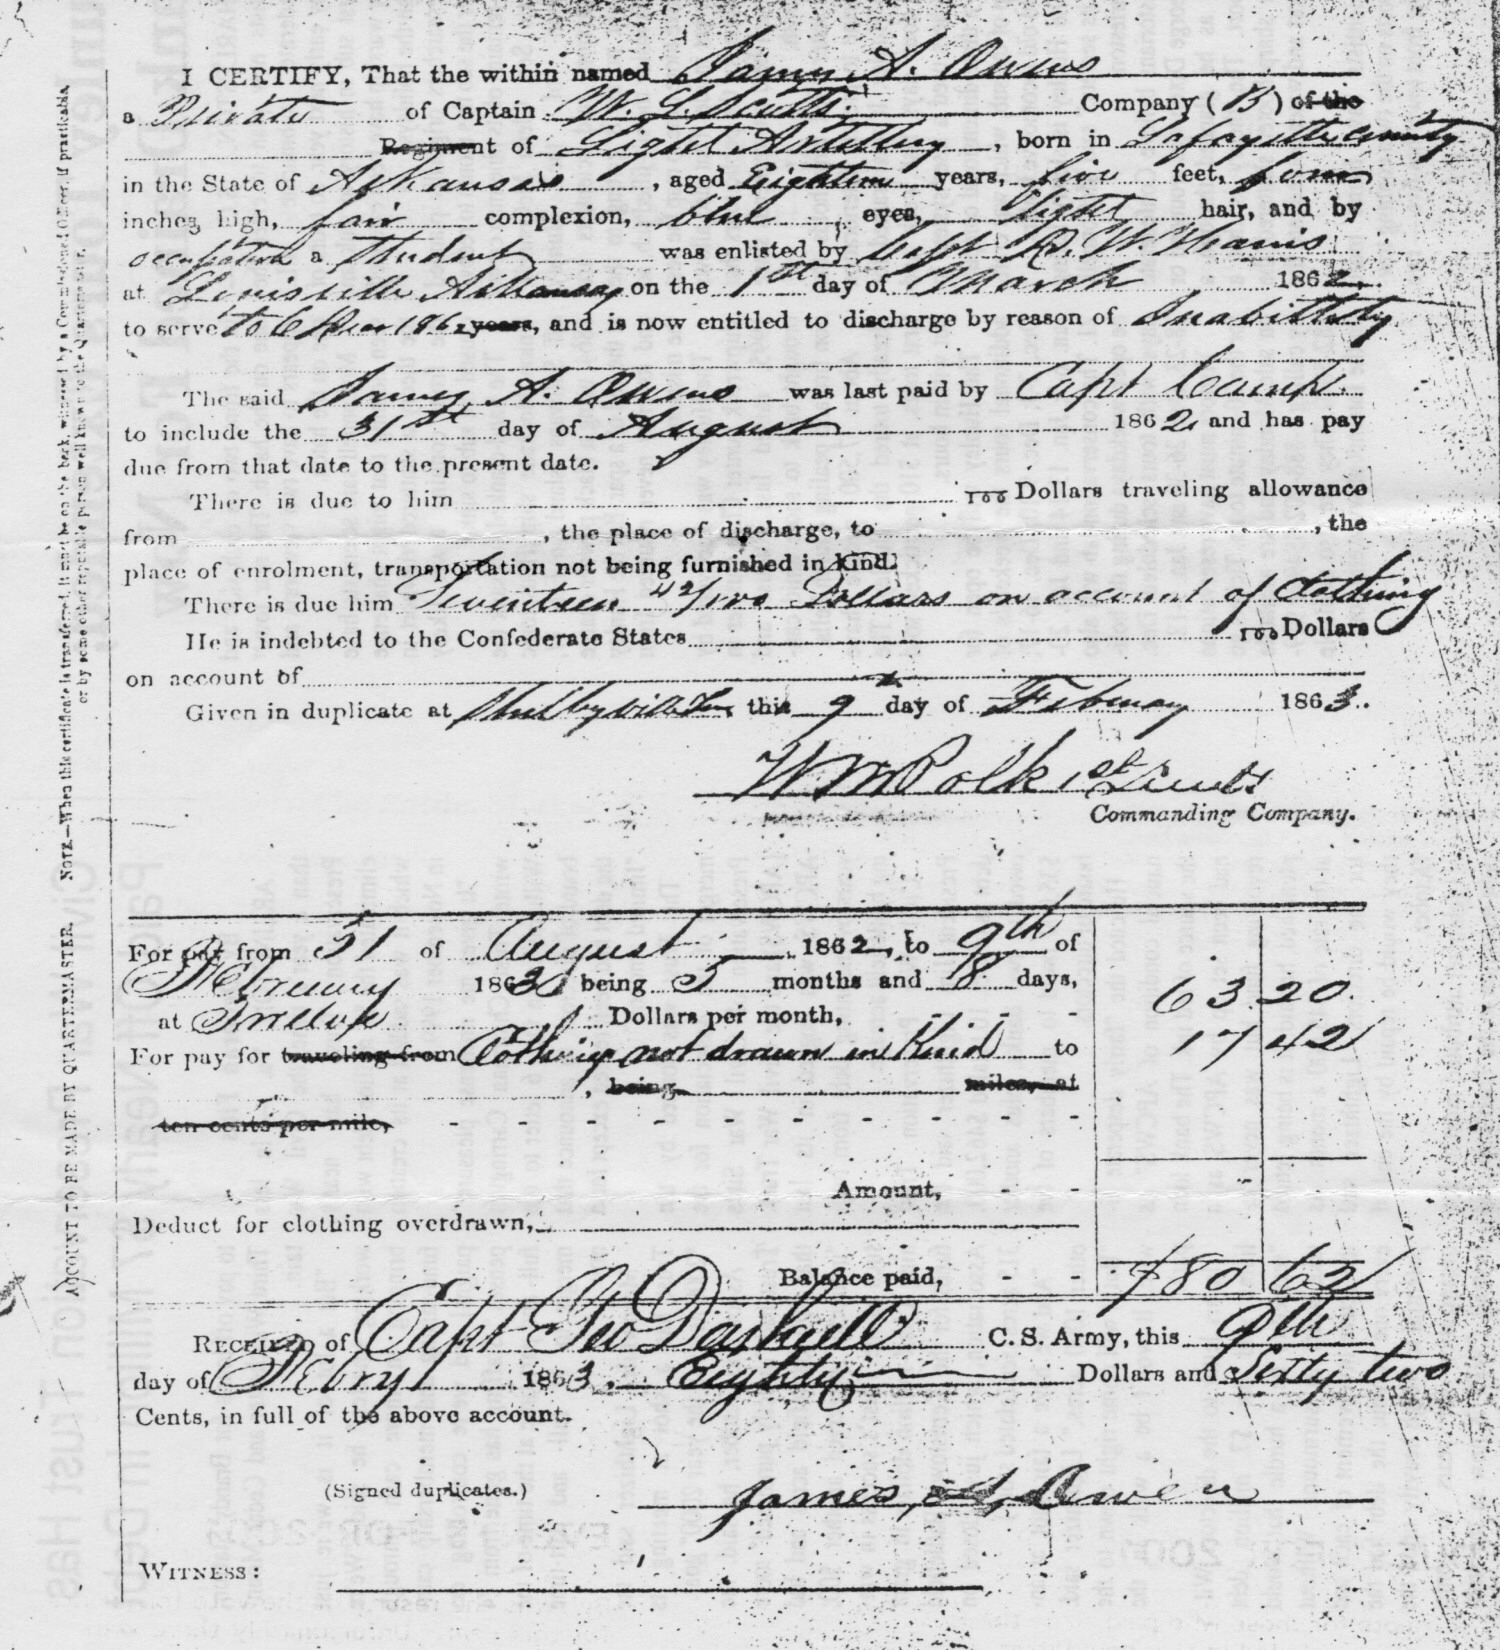 I CERTIFY, That the within named James A. Owens
a Private of Captain W. L. Scott's Company (B) of the
Regiment of Light Artillery, born in Lafayette County
in the State of Arkansas, aged Eighteen years, five feet, four
inches, high, fair complexion, blue eyes, light hair, and by
occupation a Student was enlisted by Capt R. W. Harris
at Lewisville Arkansas on the 1st day of March 1862,
to serve to 6 1862 years, and is now entitled to discharge by reason of
The said James A. Owens was last paid by Capt Camp
to include the 31st day of August 1862 and has pay
due from that date to the present date.
There is due to him 100 Dollars traveling allowance
from , the place of discharge, to , the
place of enrolment, transportation not being furnished in kind.
There is due him Seventeen 42/100 Dollars on account of Clothing
He is indebted to the Confederate States 100 Dollars
on account of
Given in duplicate at Shelbyville Ten this 9 day of February 1863.
W M Polk 1st Lieut
Commanding Company.
For pay from 31 of August 1862, to 9th of
February 1863 being 5 months and 8 days,
at Twelve Dollars per month, - - - 63.20
For pay for traveling from Clothing not drawn in Kind to 17 42
, being miles, at
ten cents per mile, - - - - - - - - - -
Amount, - -
Deduct for clothing overdrawn,
Balance paid, - - $80 62
RECEIVED of Capt Geo C. S. Army, this 9th
day of Febry 1863, Eighty Dollars and Sixty two
Cents, in full of the above account.
(Signed duplicates.) James A, Owen
WITNESS:
NOTE.—When this certificate is transferred, it must be on the back, witnessed by a Commissioned Officer, if practicable,
or by some other reputable person well known to the Quartermaster.
ACCOUNT TO BE MADE BY QUARTERMASTER.